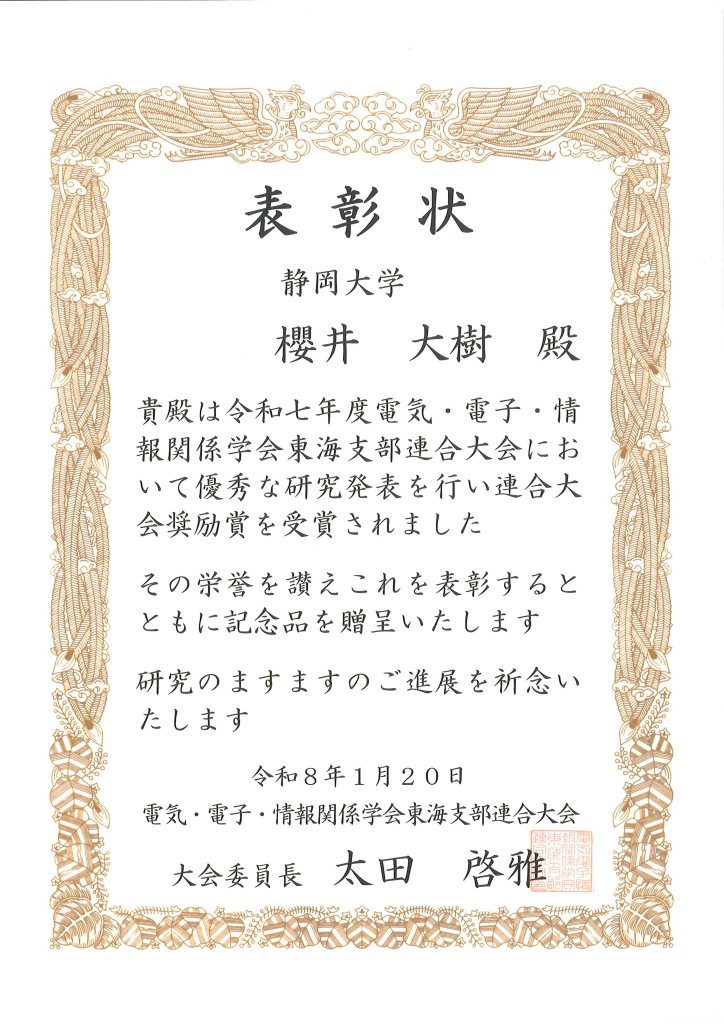 表彰状
静岡大学
櫻井 大樹 殿
貴殿は令和七年度電気・電子・情
報関係学会東海支部連合大会にお
いて優秀な研究発表を行い連合大
会奨励賞を受賞されました
その栄誉を讃えこれを表彰すると
ともに記念品を贈呈いたします
研究のますますのご進展を祈念い
たします
令和8年1月20日
電気・電子・情報関係学会東海支部連合大会
大会委員長 太田 啓雅